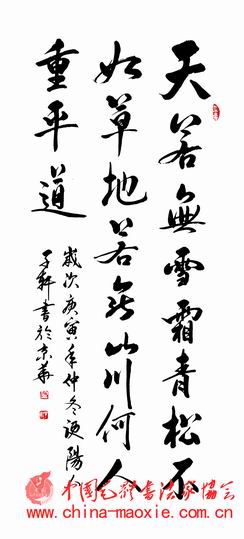 天若無雪霜青松不
如草地若無山川何人
重平道
歲次庚寅年仲冬
子軒書於京華
中国毛體书法家協会
www.china-maoxie.com.cn